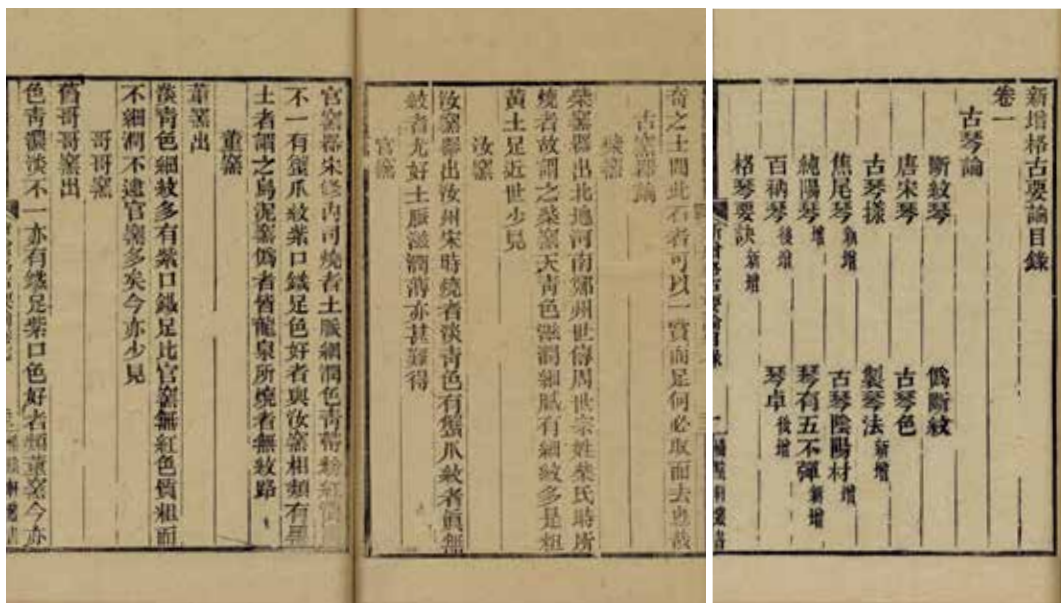 新增格古要論目錄
卷一
古琴論
斷紋琴 偽斷紋
唐宋琴 古琴色
古琴樣 製琴法新增
焦尾琴新增 古琴陰陽材增
純陽琴增 琴有五不彈新增
百衲琴後增 琴卓後增
格琴要訣新增
奇之士聞此石者可以一賞而足何必取而去也哉
古窯器論
柴窯
柴窯器出北地河南鄭州世傳周世宗姓柴氏時所
燒者故謂之柴窯天青色滋潤細膩有細紋多是粗
黃土足近世少見
汝窯
汝窯器出汝州宋時燒者淡青色有蟹爪紋者真無
紋者尤好土脈滋潤薄亦甚難得
官窯
官窯器宋修內司燒者土脈細潤色青帶粉紅
不一有蟹爪紋紫口鐵足色好者與汝窯相類有黑
土者謂之烏泥窯偽者皆龍泉所燒者無紋路
董窯
董窯出
淡青色細紋多有紫口鐵足比官窯無紅色質粗而
不細潤不逮官窯多矣今亦少見
哥哥窯
舊哥哥窯出
色青濃淡不一亦有鐵足紫口色好者類董窯今亦